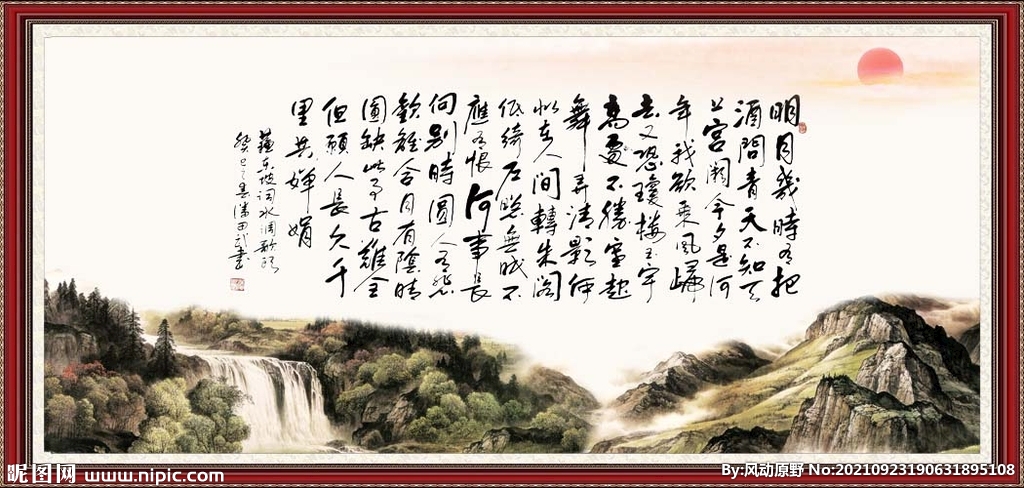 明月幾時有把
酒問青天不知天
上宮闕今夕是何
年我欲乘風歸
去又恐瓊樓玉宇
高處不勝寒起
舞弄清影何
似在人間轉朱閣
低綺戶照無眠不
應有恨何事長
向別時圓人有悲
歡離合月有陰晴
圓缺此事古難全
但願人長久千
里共嬋娟
蘇東坡詞水調歌頭
癸巳
昵图网 www.nipic.com
By:风动原野 No:20210923190631895108